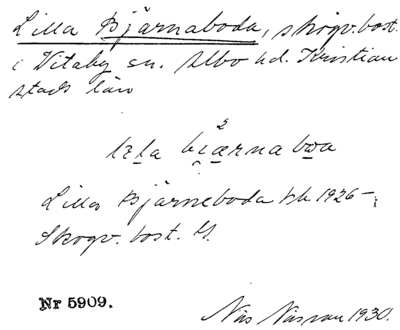 Lilla Bjärnaboda, skogv.bost.
i Vitaby sn. Albo hd. Kristian
stads län
la biærna boa
Lilla Bjärneboda kb 1926–
Skogv. bost.
Nr 5909.
Nils Nässau 1930.